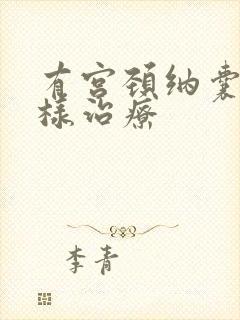 有宫颈纳囊
样治療
李青